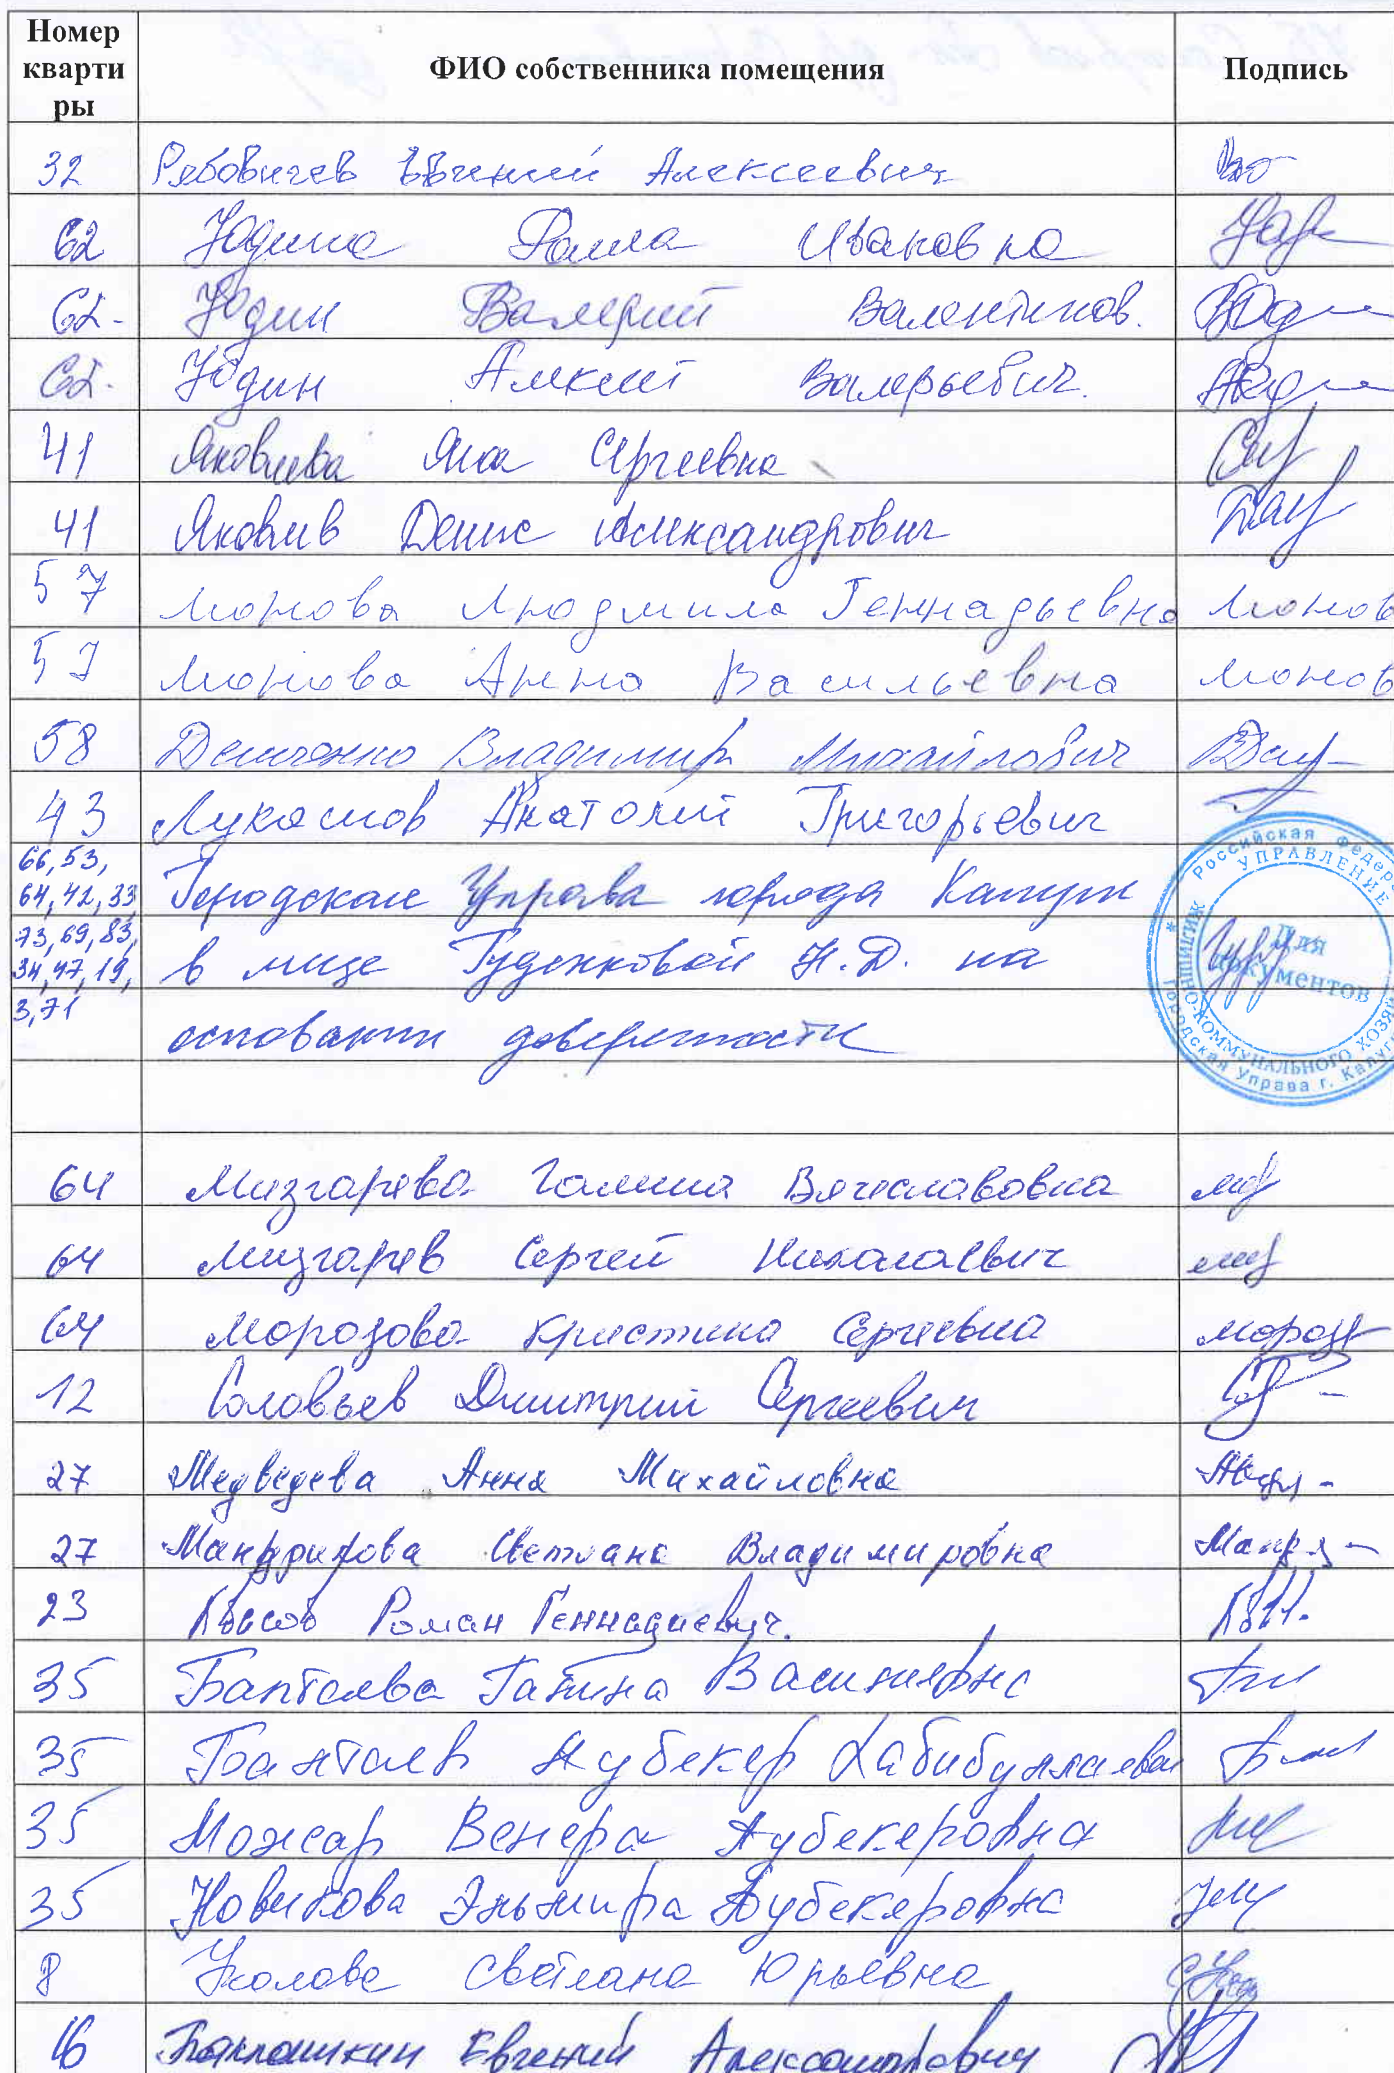 Номер кварти ры ФИО собственника помещения Подпись
32 Рябовичев Евгений Алексеевич
62 Юдина Раиса Ивановна
62. Юдин Валерий Валентинов.
62. Юдин Алексей Валерьевич.
41 Яковлева Яна Сергеевна
41 Яковлев Денис Александрович
57 Монова Людмила Геннадьевна Монов
57 Монова Анна Васильевна Монов
58 Демченко Владимир Михайлович
43 Лукашов Анатолий Григорьевич
66, 53,
64, 42, 33, Городская Управа города Калуги
73, 69, 83,
34, 47, 19, в лице Гуденковой Н.Д. на
3, 71
основании доверенности
* Российская Федера
УПРАВЛЕНИЕ
ЖИЛИЩНО-КОММУНАЛЬНОГО ХОЗЯЙ
Городская Управа г. Калуги
Для
документов
64 Мизгарева Галина Вячеславовна
64 Мизгарев Сергей Николаевич
64 Морозова Кристина Сергеевна Мороз
12 Соловьев Дмитрий Сергеевич
27 Медведева Анна Михайловна
27 Мандрикова Светлана Владимировна
23 Роман Геннадиевич.
35 Бантаева Галина Васильевна
35 Бантаев Аубекер Хабибуллаевич
35 Можар Венера Аубекеровна
35 Новикова Эльмира Аубекеровна
8 Уколова Светлана Юрьевна
16 Евгений Александрович